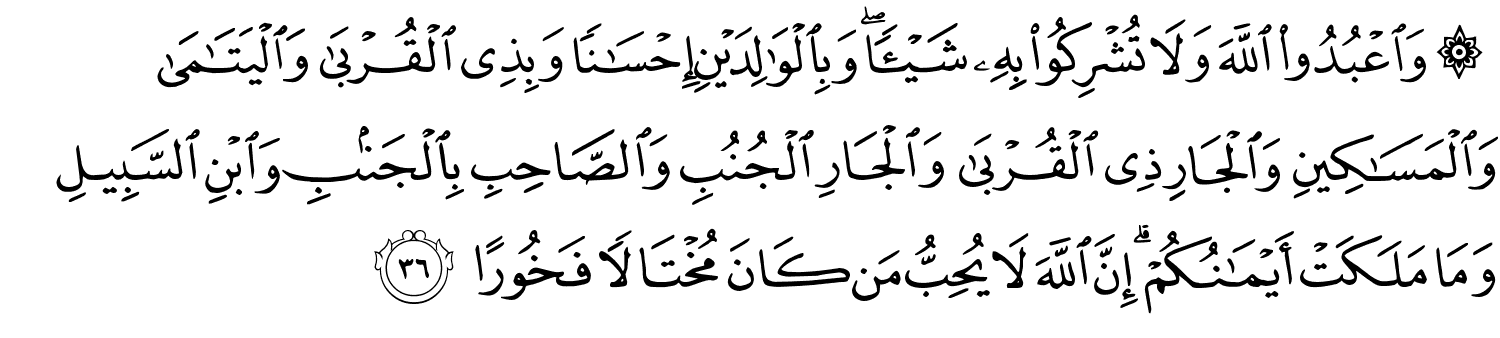 ۞ وَٱعۡبُدُواْ ٱللَّهَ وَلَا تُشۡرِكُواْ بِهِۦ شَيۡـٔٗاۖ وَبِٱلۡوَٰلِدَيۡنِ إِحۡسَٰنٗا وَبِذِي ٱلۡقُرۡبَىٰ وَٱلۡيَتَٰمَىٰ
وَٱلۡمَسَٰكِينِ وَٱلۡجَارِ ذِي ٱلۡقُرۡبَىٰ وَٱلۡجَارِ ٱلۡجُنُبِ وَٱلصَّاحِبِ بِٱلۡجَنۢبِ وَٱبۡنِ ٱلسَّبِيلِ
وَمَا مَلَكَتۡ أَيۡمَٰنُكُمۡۗ إِنَّ ٱللَّهَ لَا يُحِبُّ مَن كَانَ مُخۡتَالٗا فَخُورًا ٣٦